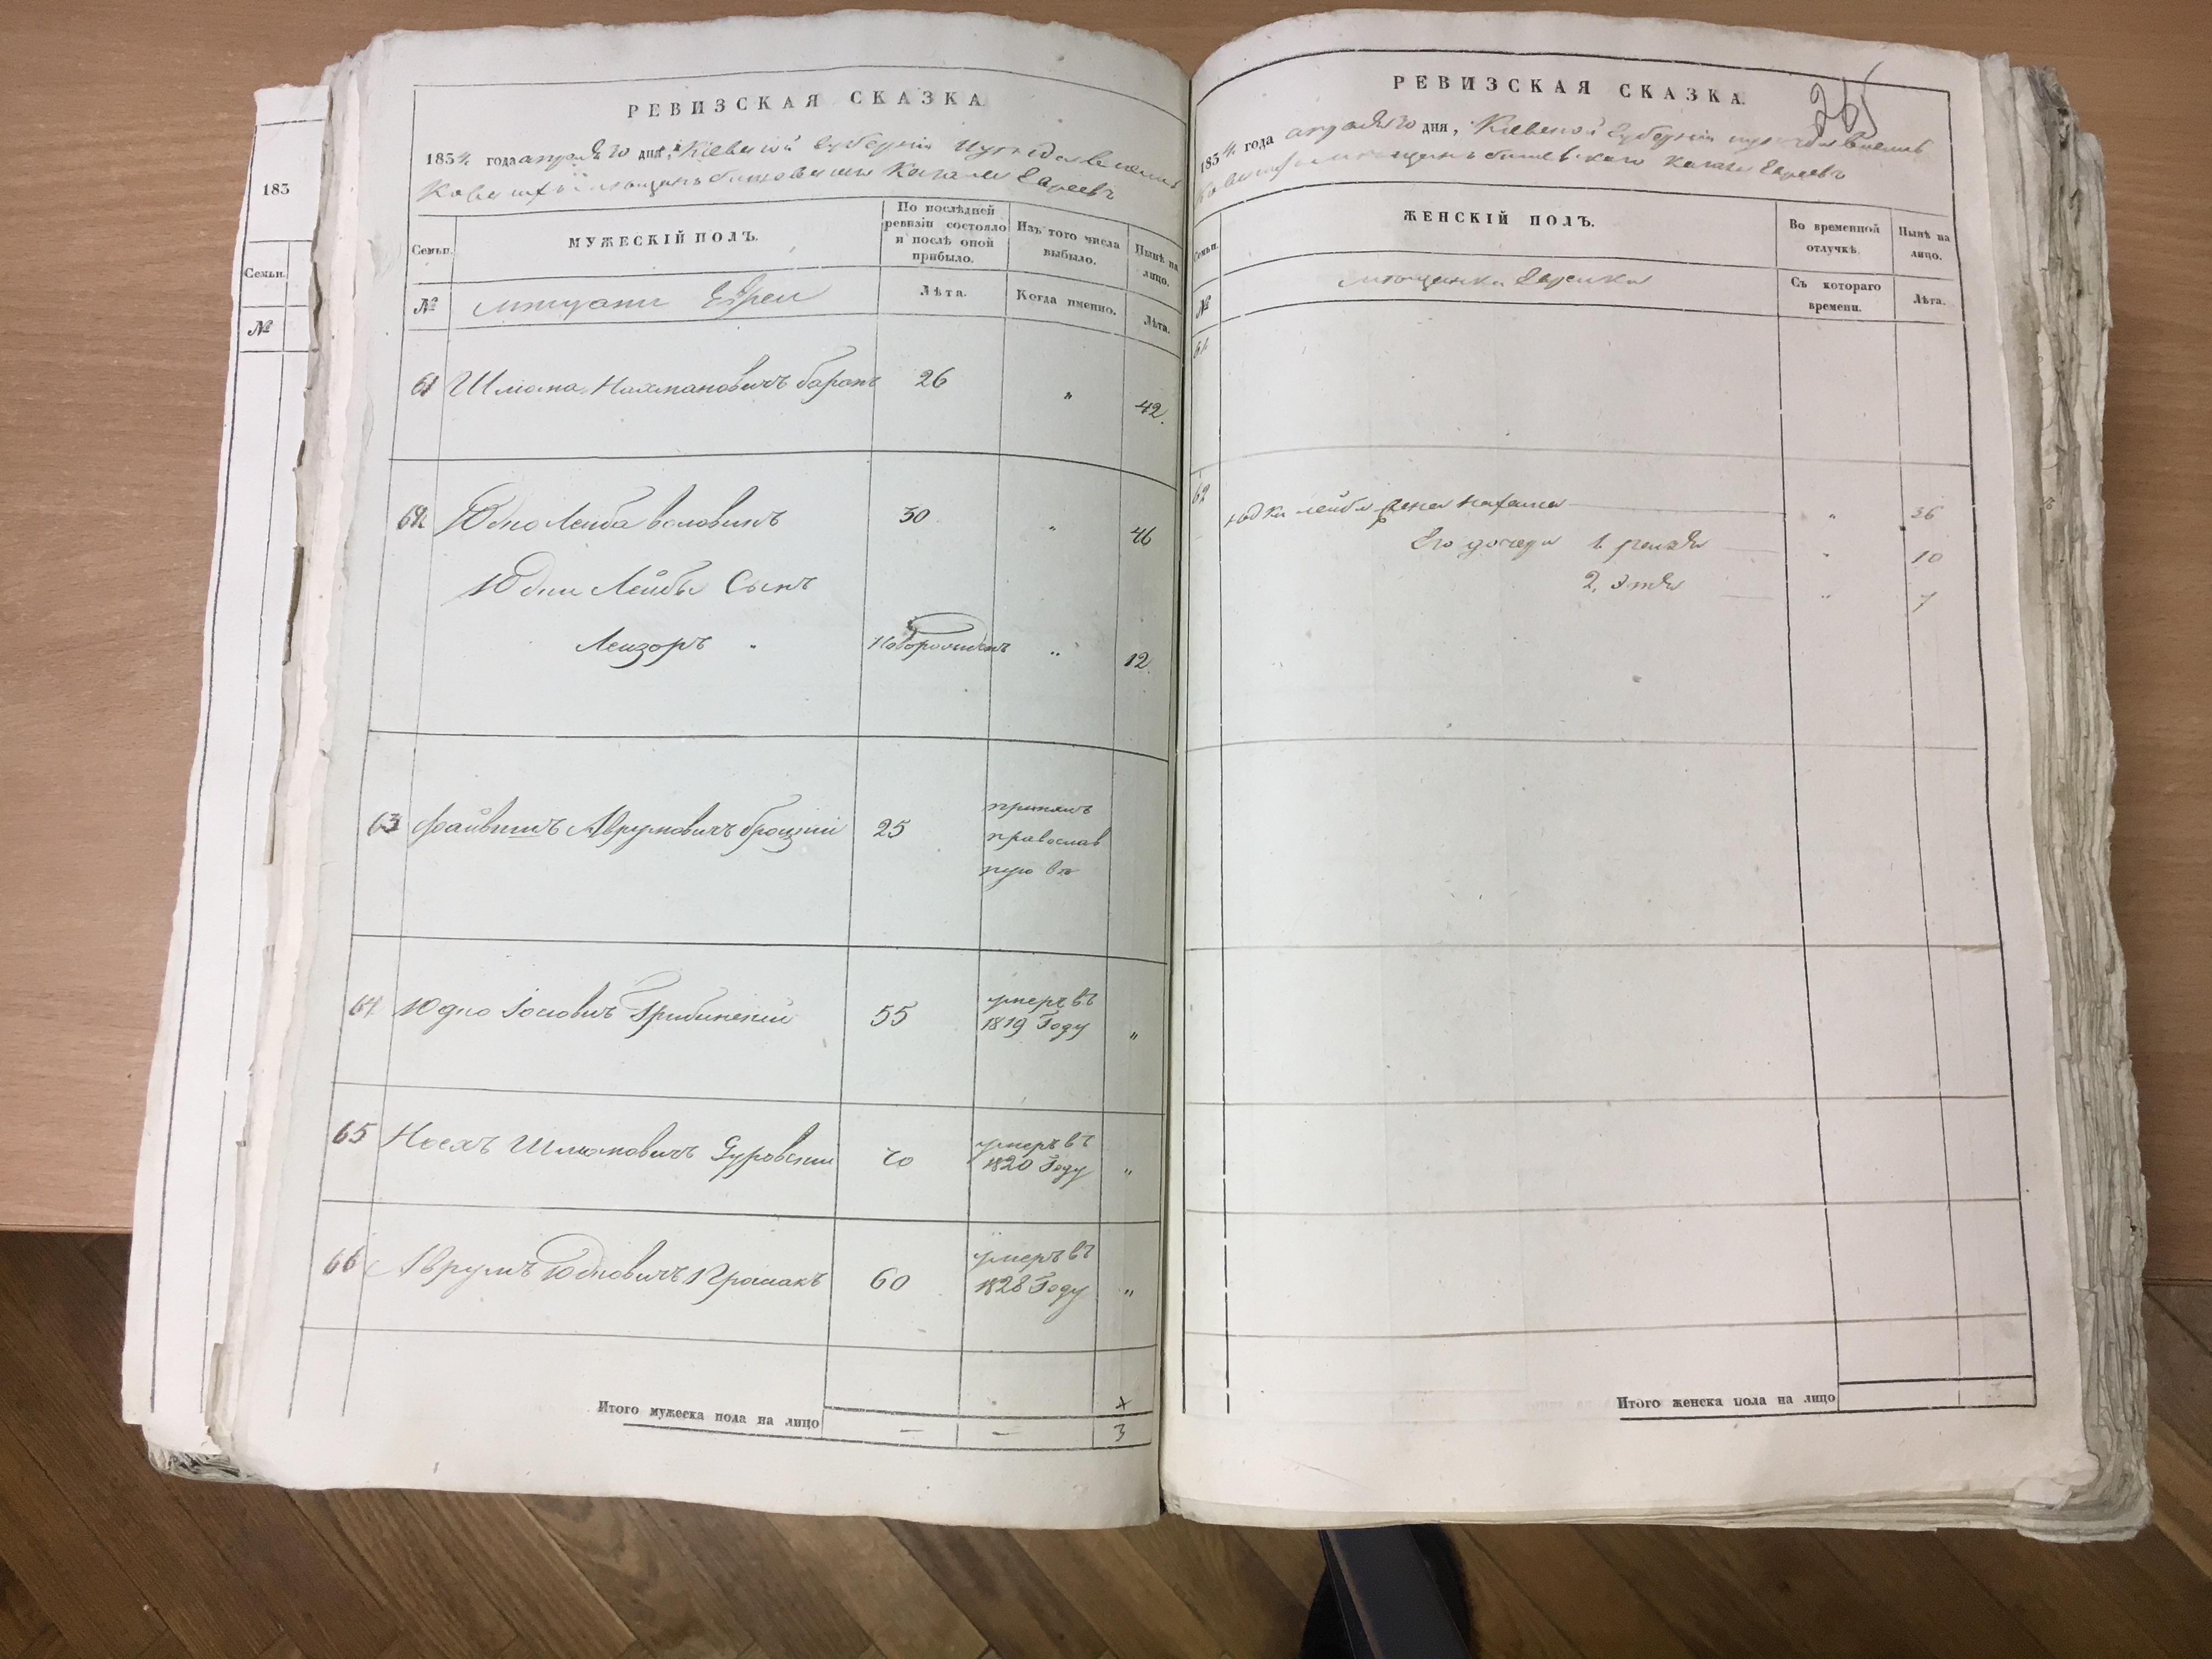 183
Семьи.
№
РЕВИЗСКАЯ СКАЗКА
1834 года апреля 20 дня, Кіевской Губерніи
Кагала Евреевъ
Семьи.
МУЖЕСКІЙ ПОЛЪ.
По послѣдней ревизіи состояло и послѣ оной прибыло.
Изъ того числа выбыло.
Нынѣ на лицо.
№
мещане Евреи
Лѣта.
Когда именно.
Лѣта.
61 Шлиома Нахмановичъ баронъ 26 " 42.
62 Юдко Лейба воловикъ 30 " 46
Юдки Лейбы Сынъ
Лейзоръ Новорожденъ " 12.
63 Файвишъ Аврумовичъ броцкій 25 принялъ
православ
ную вѣ
64 Юдко Іосіовичъ Грибинскій 55 умеръ въ
1819 Году "
65 Носехъ Шлиомовичъ Гуровскій 20 умеръ въ
1820 Году "
66 Аврумъ Юдковичъ 60 умеръ въ
1828 Году "
Итого мужеска пола на лицо — — 3
РЕВИЗСКАЯ СКАЗКА.
1834 года апреля 20 дня, Кіевской Губерніи
Кагала Евреевъ
Семьи.
ЖЕНСКІЙ ПОЛЪ.
Во временной отлучкѣ.
Нынѣ на лицо.
№
мещанки Еврейки
Съ котораго времени.
Лѣта.
61
62 Юдки лейбы жена " 36
Его дочери 1. " 10
2. " 7
Итого женска пола на лицо